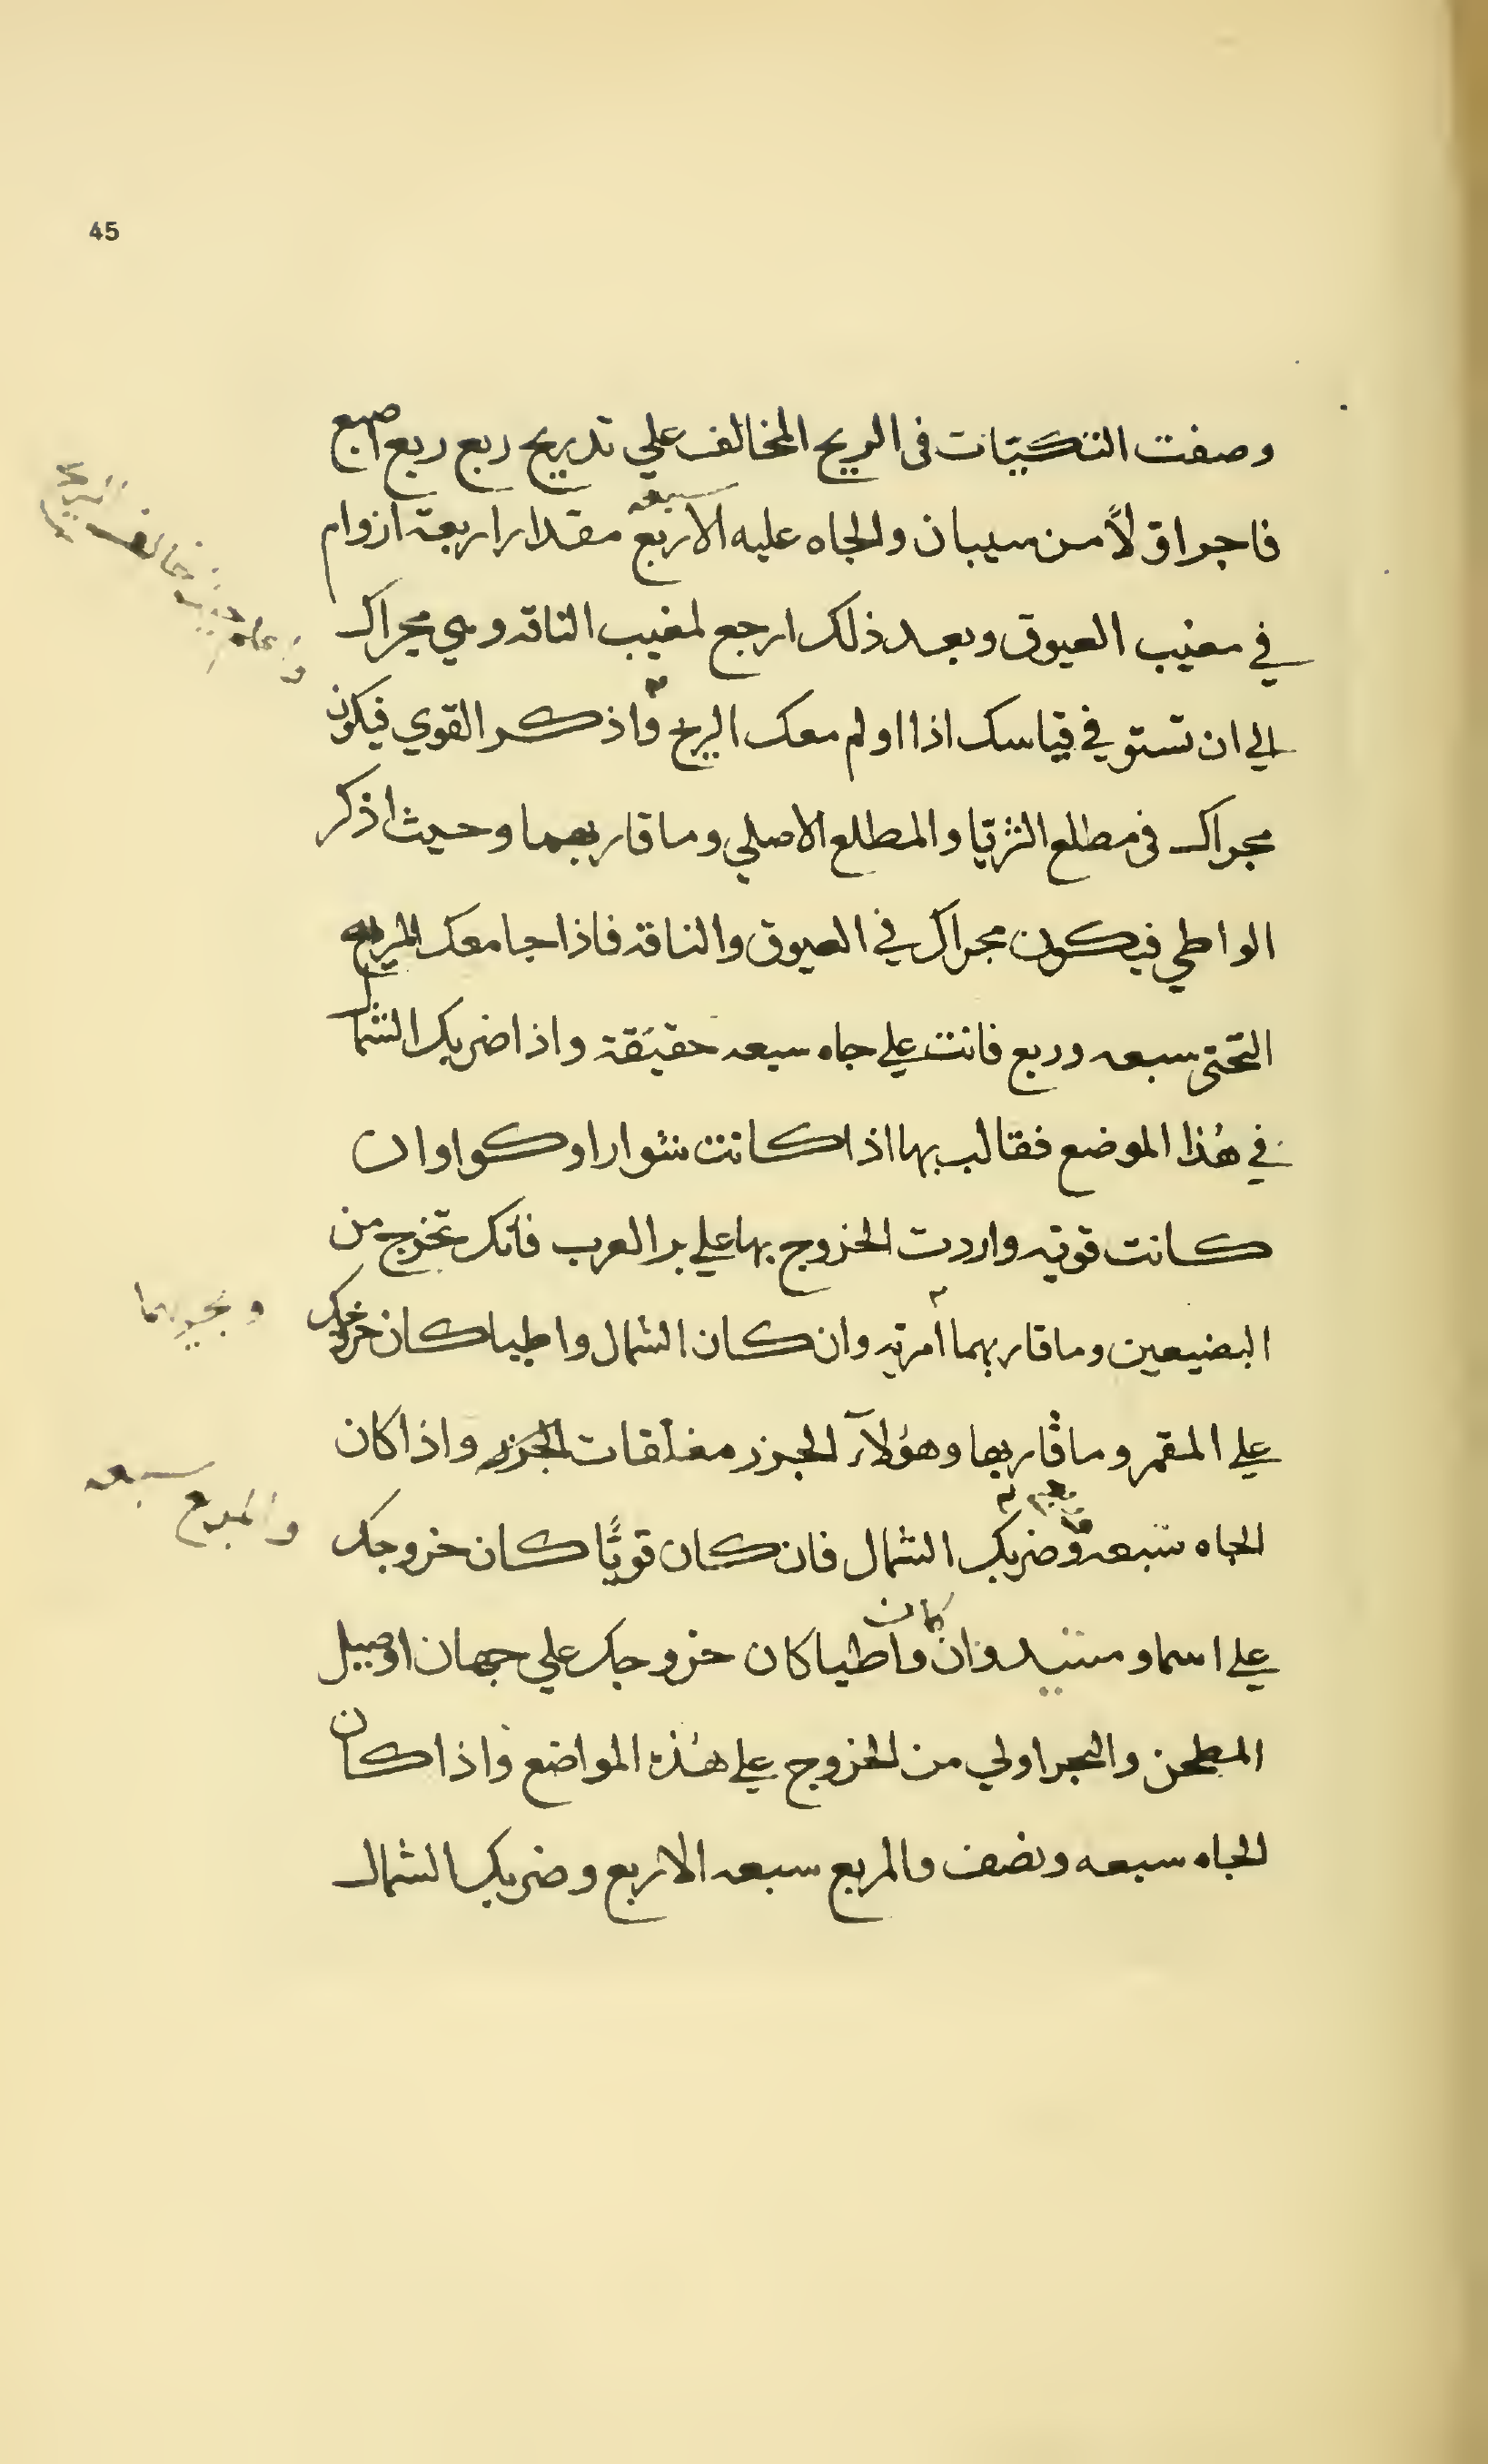 45
وصفت التنكيّات فى الريح المخالف علي تدريج ربع ربع اصبع
فاجر اوّلاً من سيبان والجاه عليه سبعه الاربع مقدار اربعة ازوام
في مغيب العيوق وبعد ذلك ارجع لمغيب الناقه وهي مجراك
الي ان تستوفي قياسك اذا اولم معك الريح واذكر القوي فيكون
مجراك فى مطلع الثريّا والمطلع الاصلي وما قاربهما وحيث اذكر
الواطي فيكون مجراك في العيوق والناقه فاذا جا معك المربع
التحتى سبعه وربع فانت علي جاه سبعه حقيقة واذا ضربك الشمال
في هذا الموضع فقالب بها اذا كانت شوارا وكواوان
كانت قويه واردت الخروج بها علي بر العرب فانك تخرج من
البضيعين وما قاربهما امريه وان كان الشمال واطيا كان خروجك
ويجيبهما
علي المقمر وما قاربها وهؤلاء الجزر مغلقات الجزر واذا كان
الجاه سبعه وضربك الشمال فان كان قويًّا كان خروجك
والمربع سبعه
علي اسما ومسند وان كان واطيا كان خروجك علي جهان او صيل
المطحن والحجر اولي من الخروج علي هذه المواضع واذا كان
الجاه سبعه ونصف والمربع سبعه الاربع وضربك الشمال